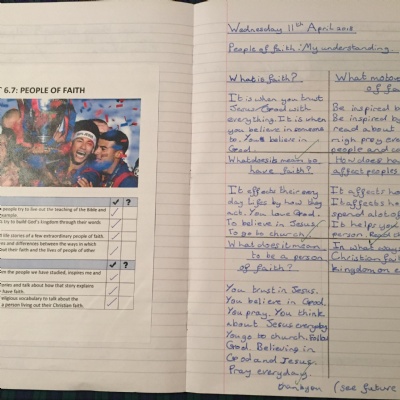 6.7: PEOPLE OF FAITH
people try to live out the teaching of the Bible and
try to build God's kingdom through their words
life stories of a few extraordinary people of faith.
and differences between the ways in which
out their faith and the lives of people of other
the people we have studied, inspires me and
stories and talk about how that story explains
have faith.
religious vocabulary to talk about the
a person living out their Christian faith.
Wednesday 11th April 2018
People of faith: My understanding...
What is faith?
It is when you trust
Jesus/God with
everything. It is when
you believe in someone
to. You believe in
God.
What does it mean to
have faith?
It effects their every
day lifes by how they
act. You love God.
To believe in Jesus/
To go to church/
What does it mean
to be a person
of faith?
You trust in Jesus.
You believe in God.
You pray. You think
about Jesus everyday.
You go to church. Follow
God. Believing in
God and Jesus.
Pray everyday.
What
of fa
Be inspired b
Be inspired by
read about
migh pray eve
people and co
How does ha
affect peoples
It affects ho
It affects ho
spend alot of
It helps you
person.
In what ways
Christian fait
kingdom on e
(see future